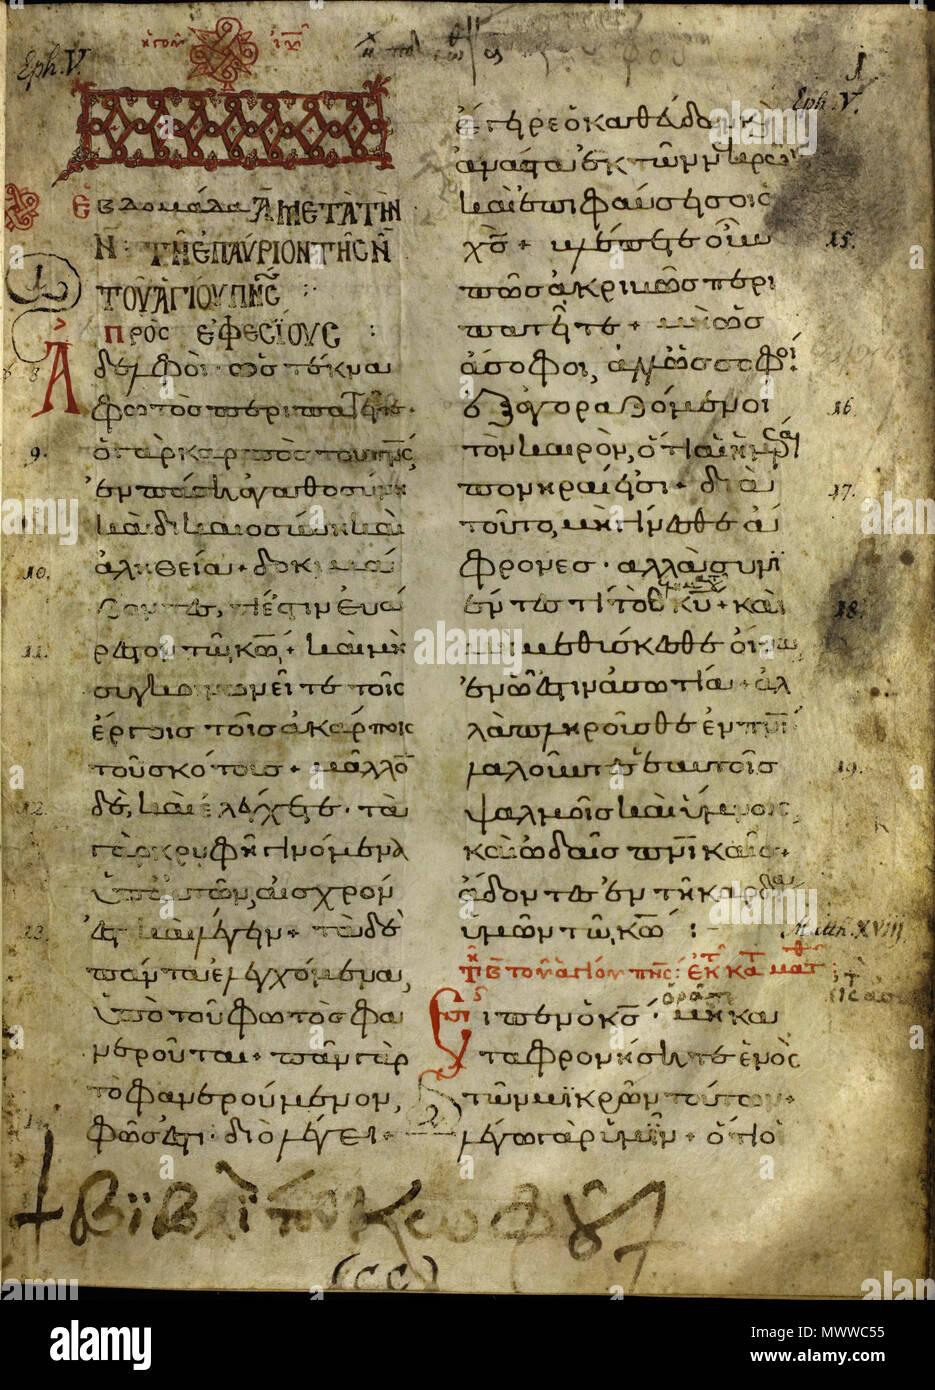 Eph. V.
Eph. V.
1
ἙβδομάδΑ Α ΜΕΤΑ ΤῊΝ
Ν̄ : ΤΗ͂ ἘΠΑΎΡΙΟΝ ΤΗ͂Σ Ν̄
ΤΟΥ͂ ἉΓΊΟΥ ΠΝ̄Σ :
πρὸς ἐφεσίους :
Ἀδελφοὶ· ὡς τέκνα
φωτὸς περιπατεῖτε·
9. ὁ γὰρ καρπὸς τοῦ πν̄ς,
ἐν πάσῃ ἀγαθοσύνη
καὶ δικαιοσύνη καὶ
10. ἀληθεία + δοκιμά
ζοντες, τί ἐστιν εὐά
11. ρεστον τῶ κω̄ + καὶ μὴ
συγκοινωνεῖτε τοῖς
ἔργοις τοῖς ἀκάρποις
τοῦ σκότους + μᾶλλο
12. δὲ, καὶ ἐλέγχετε· τὰ
γὰρ κρυφῆ γινόμενα
ὑπ' αὐτῶν, αἰσχρόν
13. ἐστι καὶ λέγειν + τὰ δὲ
πάντα ἐλεγχόμενα,
ὑπὸ τοῦ φωτὸς φα
νεροῦται + πᾶν γὰρ
τὸ φανερούμενον,
φῶς ἐστι· διὸ λέγει +
ἔγειρε ὁ καθεύδων κ
ἀνάστα ἐκ τῶν νεκρῶν
καὶ ἐπιφαύσει σοι ὁ
15. χς̄ + βλέπετε οὖν
πῶς ἀκριβῶς περι
πατεῖτε + μὴ ὡς
ἄσοφοι, ἀλλ' ὡς σοφοὶ
16. ἐξαγοραζόμενοι
τὸν καιρὸν, ὅτι αἱ ἡμέραι
17. πονηραί εἰσι + διὰ
τοῦτο, μὴ γίνεσθε ἄ
φρονες· ἀλλὰ συνϊ
έντες τί τὸ θέλημα κῡ + καὶ
18. μὴ μεθύσκεσθε οἴνω,
ἐν ὧ ἐστιν ἀσωτία + ἀλ
λὰ πληροῦσθε ἐν πνϊ
19. λαλοῦντες ἑαυτοῖς
ψαλμοῖς καὶ ὕμνοις,
καὶ ὠδαῖς πν̄ικαῖς +
ἄδοντες ἐν τῆ καρδία
ὑμῶν τῶ κω̄ :
Matth. XVIII
τοῦ ἁγίου πν̄ς : ἐκ κατ ματθ
Εἶπεν ὁ κς̄· ὁρᾶτε μὴ κα
ταφρονήσητε ἑνὸς
τῶν μϊκρῶν τούτων +
λέγω γὰρ ὑμῖν + ὅτι οἱ
(CC)